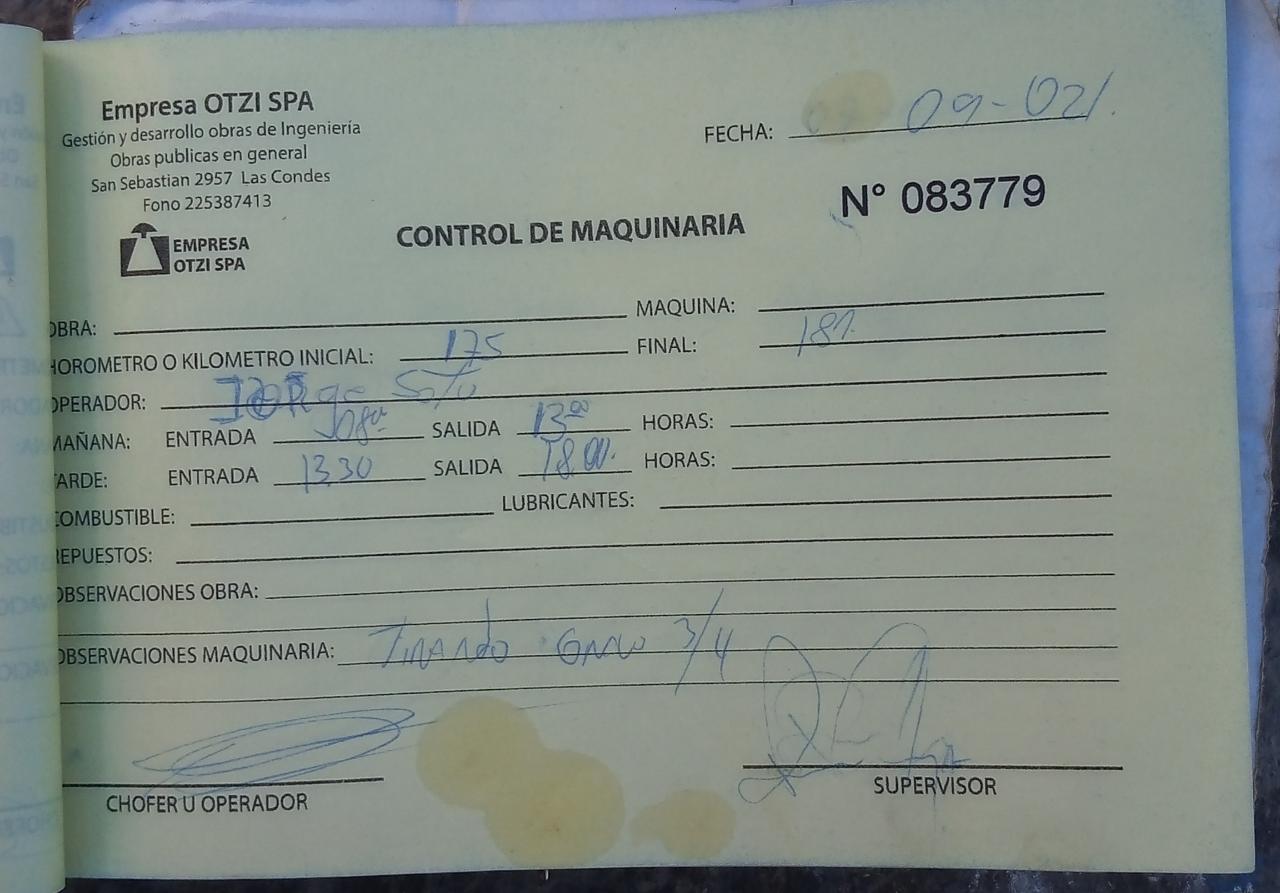 Empresa OTZI SPA
Gestión y desarrollo obras de Ingeniería
Obras publicas en general
San Sebastian 2957 Las Condes
Fono 225387413
EMPRESA
OTZI SPA
FECHA: 09-02/.
N° 083779
CONTROL DE MAQUINARIA
OBRA: MAQUINA:
HOROMETRO O KILOMETRO INICIAL: 175 FINAL: 181.
OPERADOR: JORge Soto
MAÑANA: ENTRADA 08 SALIDA 13 00 HORAS:
TARDE: ENTRADA 13.30 SALIDA 18.00. HORAS:
COMBUSTIBLE: LUBRICANTES:
REPUESTOS:
OBSERVACIONES OBRA:
OBSERVACIONES MAQUINARIA: TIRANdo 3/4
CHOFER U OPERADOR
SUPERVISOR